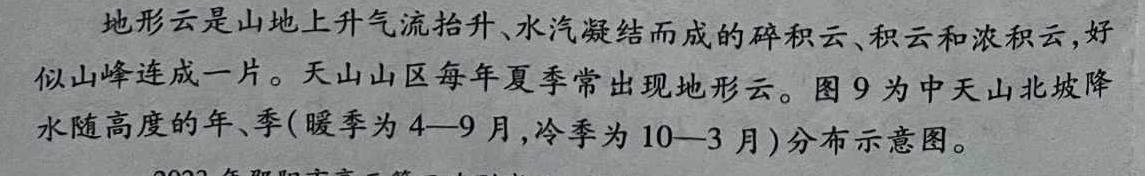 地形云是山地上升气流抬升、水汽凝结而成的碎积云、积云和浓积云,好
似山峰连成一片。天山山区每年夏季常出现地形云。图 9 为中天山北坡降
水随高度的年、季(暖季为 4—9 月,冷季为 10—3 月)分布示意图。